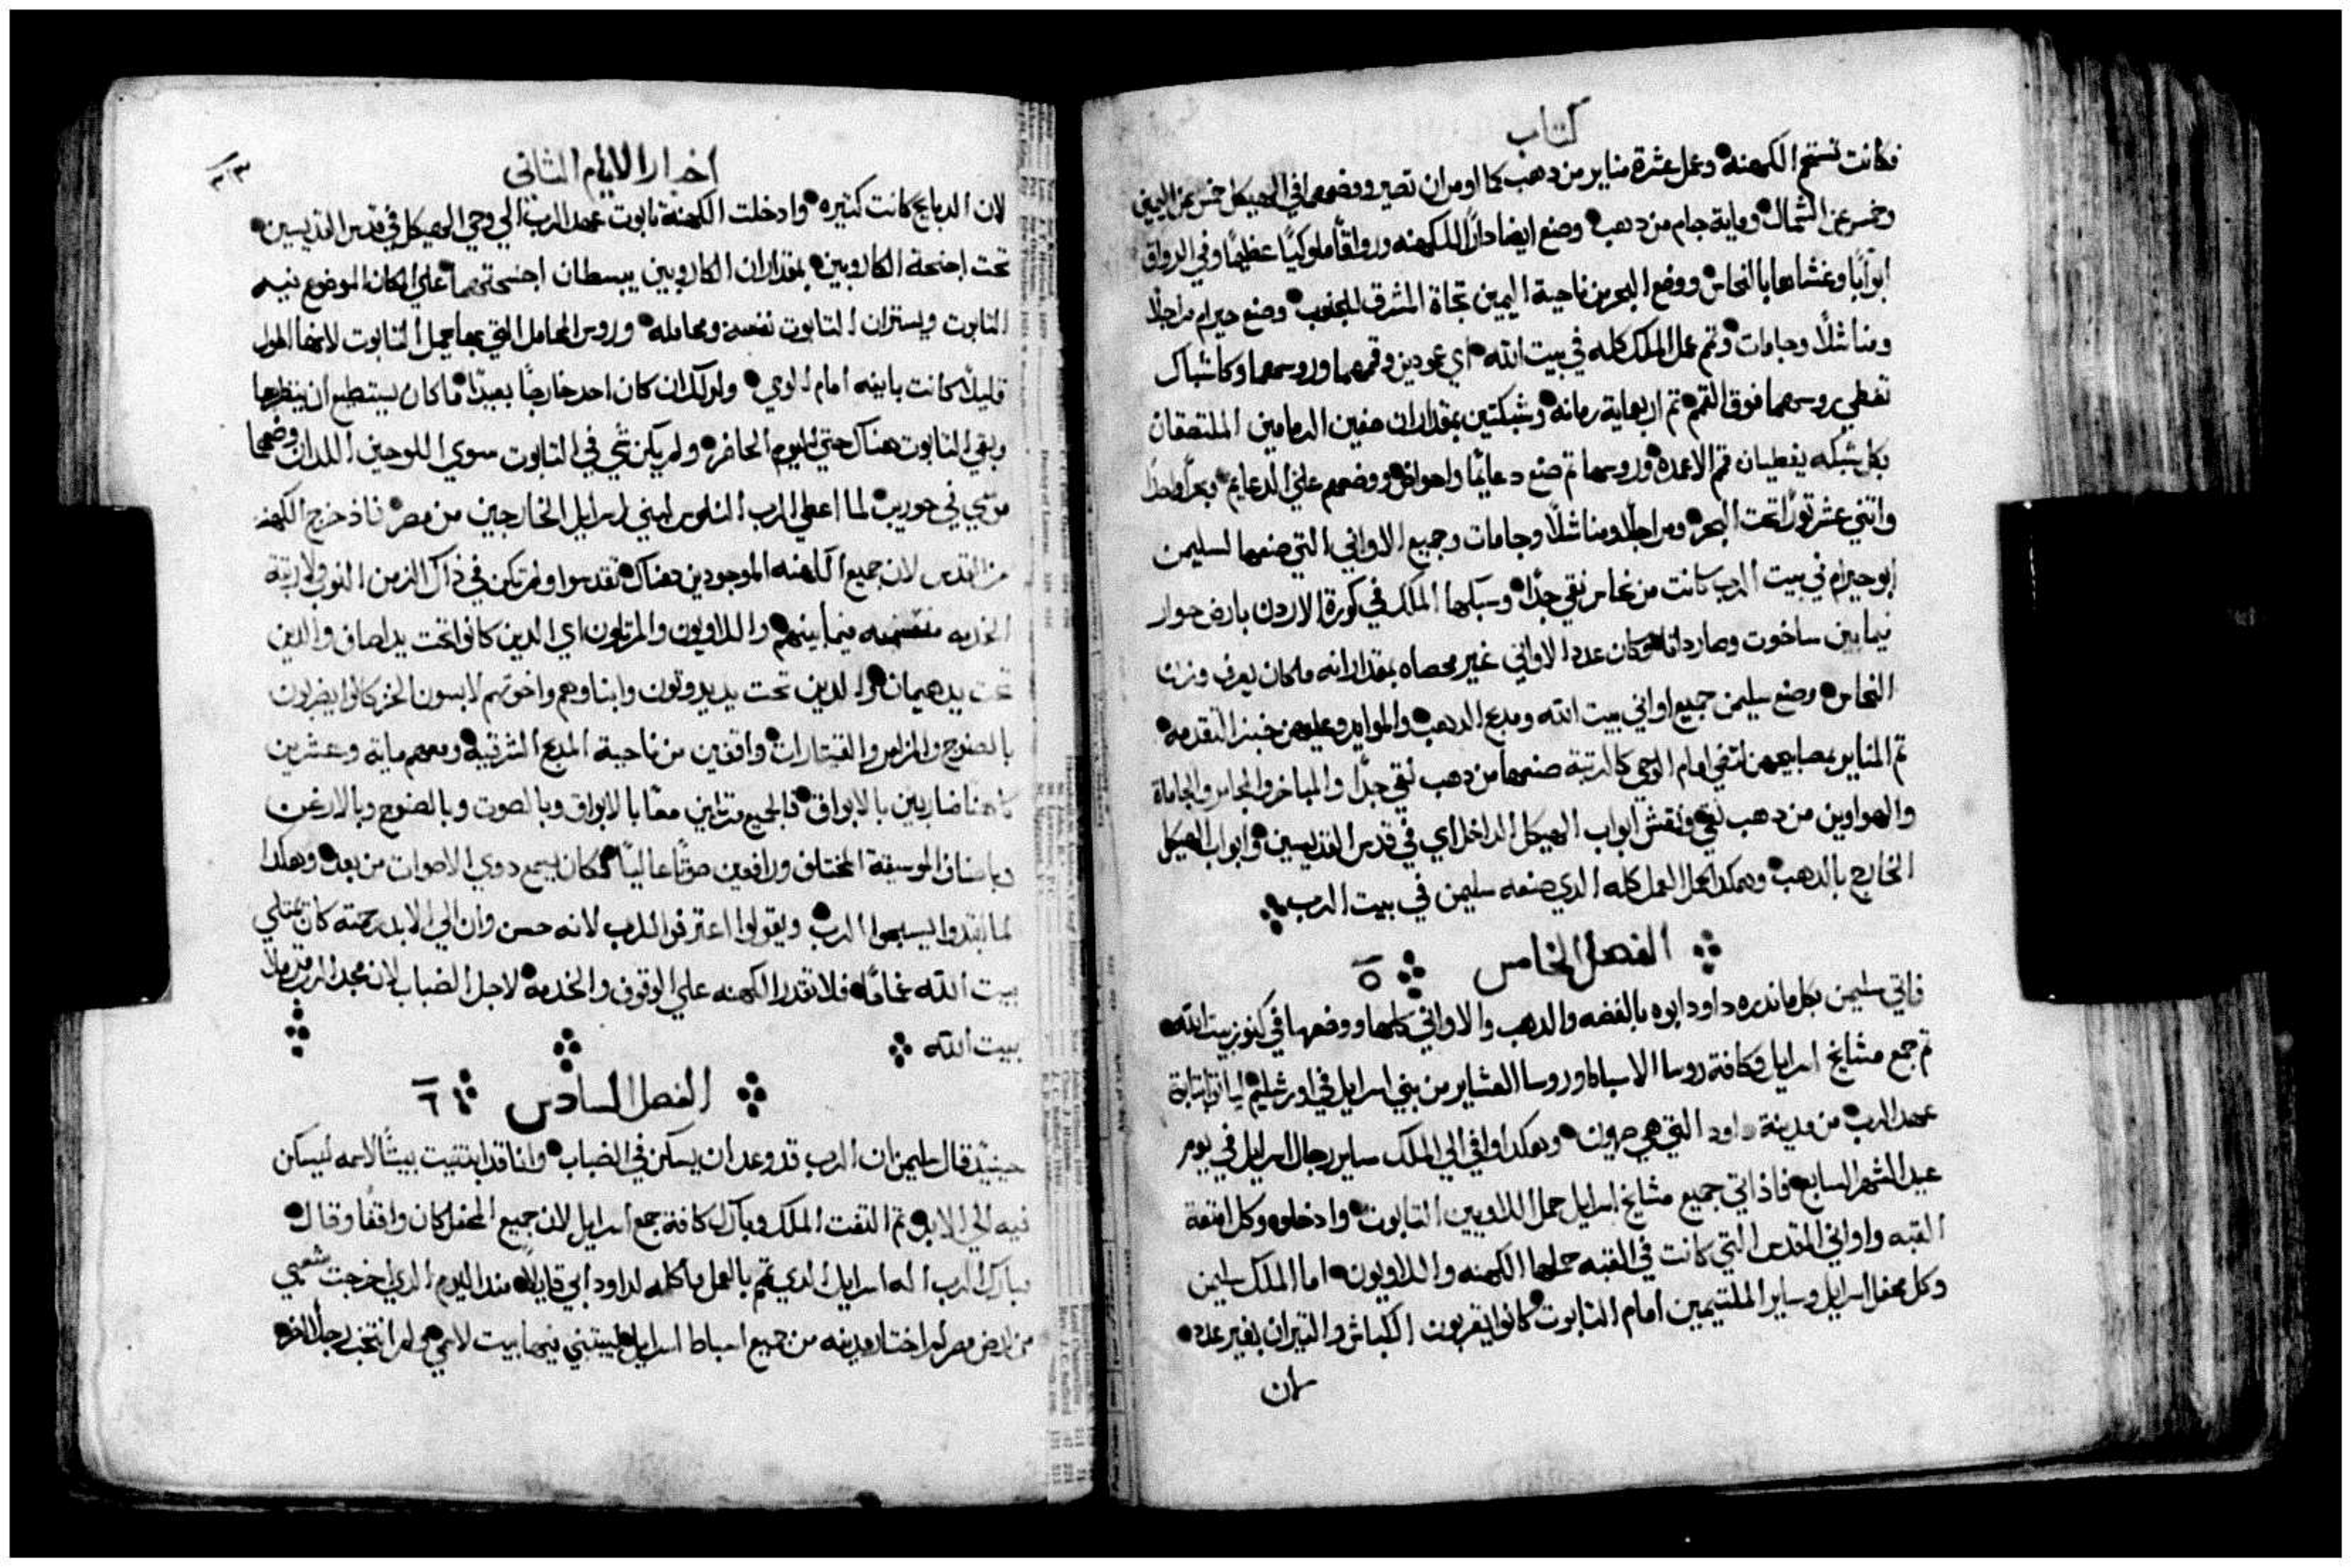 كتاب
فكانت تستحم الكهنه وعمل عشرة مناير من دهب كما اومر ان تصير ووضعها في الهيكل خمس عن اليمين
وخمس عن الشمال وماية جام من دهب وصنع ايضا دارًا للكهنه ورواقًا ملوكيًا عظيمًا وفي الرواق
ابوابًا وغشاها بالنحاس ووضع البحر من ناحية اليمين تجاة المشرق للجنوب وصنع حيرام مراجلًا
ومناشلًا وجامات وتم عمل الملك كله في بيت الله اي عمودين وقممهما وروسهما وكاشباك
تغطي روسهما فوق القمم تم اربعماية رمانه وشبكتين بمقدار ان صفين الرمامين الملتصقان
بكل شبكه يغطيان قمم الاعمده وروسها تم صنع دعايمًا واحواض ووضعهم علي الدعايم وبحرًا واحدًا
واتني عشر تورًا تحت البحر ومراجلًا ومناشلًا وجامات وجميع الاواني التي صنعها لسليمن
ابو حيرام في بيت الرب كانت من نحاس نقي جدًا وسبكها الملك في كورة الاردن بارض حوار
فيما بين ساخوت وصارداتا وكان عدد الاواني غير محصاه بمقدار انه ما كان يعرف وزن
النحاس وصنع سليمن جميع اواني بيت الله ومدبح الدهب والموايد وعليهن خبز التقدمه
تم المناير بمصابيحهن لتضي امام الوحي كالرتبة صنعها من دهب نقي جدًا والمباخر والمجامر والجاماة
والهواوين من دهب نقي ونقش ابواب الهيكل الداخل اي في قدس القديسين وابواب الهيكل
الخارج بالدهب وهكدا كمل العمل كله الدي صنعه سليمن في بيت الرب
الفصل الخامس ٥
فاتي سليمن بكل ما ندره داود ابوه بالفضه والدهب والاواني كلها ووضعها في كنوز بيت الله
تم جمع مشايخ اسرايل وكافة روسا الاسباط وروسا العشاير من بني اسرايل في اورشليم لياتوا بتابوة
عهد الرب من مدينة داود التي هي صهيون وهكدا وافي الي الملك ساير رجال اسرايل في يوم
عيد الشهر السابع فاذ اتي جميع مشايخ اسرايل حمل اللاويين التابوت وادخلوه وكل امتعة
القبه واواني المقدس التي كانت في القبه حملها الكهنه واللاويون اما الملك سليمن
وكل محفل اسرايل وساير الملتيمين امام التابوت كانوا يقربون الكباش والتيران بغير عدد
لان
اخبار الايام الثاني
لان الدبايح كانت كتيره وادخلت الكهنة تابوت عهد الرب الي وحي الهيكل في قدس القديسين
تحت اجنحة الكاروبين بمقدار ان الكاروبين يبسطان اجنحتهما علي المكان الموضوع فيه
التابوت ويستران التابوت نفسه ومحامله وروس المحامل التي بها يحمل التابوت لانها اطول
قليلًا كانت باينه امام الوحي ولدلك ان كان احد خارجًا بعيدًا ما كان يستطيع ان ينظرها
وبقي التابوت هناك حتي اليوم الحاضر ولم يكن شي في التابوت سوي اللوحين اللدان وضعهما
موسي في حوريب لما اعطي الرب الناموس لبني اسرايل الخارجين من مصر فاذ خرج الكهنه
من القدس لان جميع الكهنه الموجودين هناك تقدسوا ولم تكن في ذاك الزمن النوب ولا رتبة
الخدمه منقسمه فيما بينهم واللاويون والمرتلون اي الدين كانوا تحت يد اصاف والدين
تحت يد هيمان والدين تحت يد يدوتون وابناوهم واخوتهم لابسون الخز كانوا يضربون
بالصنوج والمزامر والقيتارات واقفين من ناحية المدبح الشرقية ومعهم ماية وعشرين
كاهنًا ضاربين بالابواق فالجميع مرتلين معًا بالابواق وبالصوت وبالصنوج وبالارغن
وباصناف الموسيقة المختلف ورافعين صوتًا عاليًا فكان يسمع دوي الاصوات من بعد وهكدا
لما ابتدوا ليسبحوا الرب ويقولوا اعترفوا للرب لانه حسن وان الي الابد رحمته كان يمتلي
بيت الله غمامًا فلا تقدر الكهنه علي الوقوف والخدمه لاجل الضباب لان مجد الرب قد ملا
بيت الله
الفصل السادس ٦
حينيذ قال سليمن ان الرب قد وعد ان يسكن في الضباب وانا قد ابتنيت بيتًا لاسمه ليسكن
فيه الي الابد تم التفت الملك وبارك كافة جمع اسرايل لان جميع المحفل كان واقفًا وقال
تبارك الرب اله اسرايل الدي تمم بالعمل ما كلمه لداود ابي قايلًا مند اليوم الدي اخرجت شعبي
من ارض مصر لم اختار مدينه من جميع اسباط اسرايل ليبتني فيها بيت لاسمي ولم انتخب رجل اخر